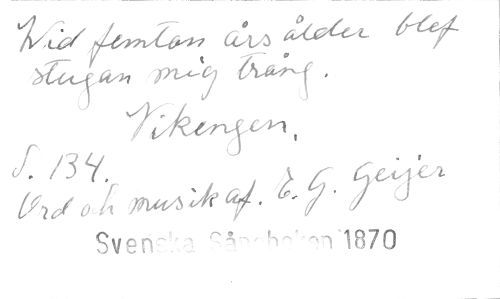 Wid femton års ålder blef
stugan mig trång.
Vikengen.
S. 134.
Ord och musik af. E. G. Geijer
Svenska Sångboken 1870